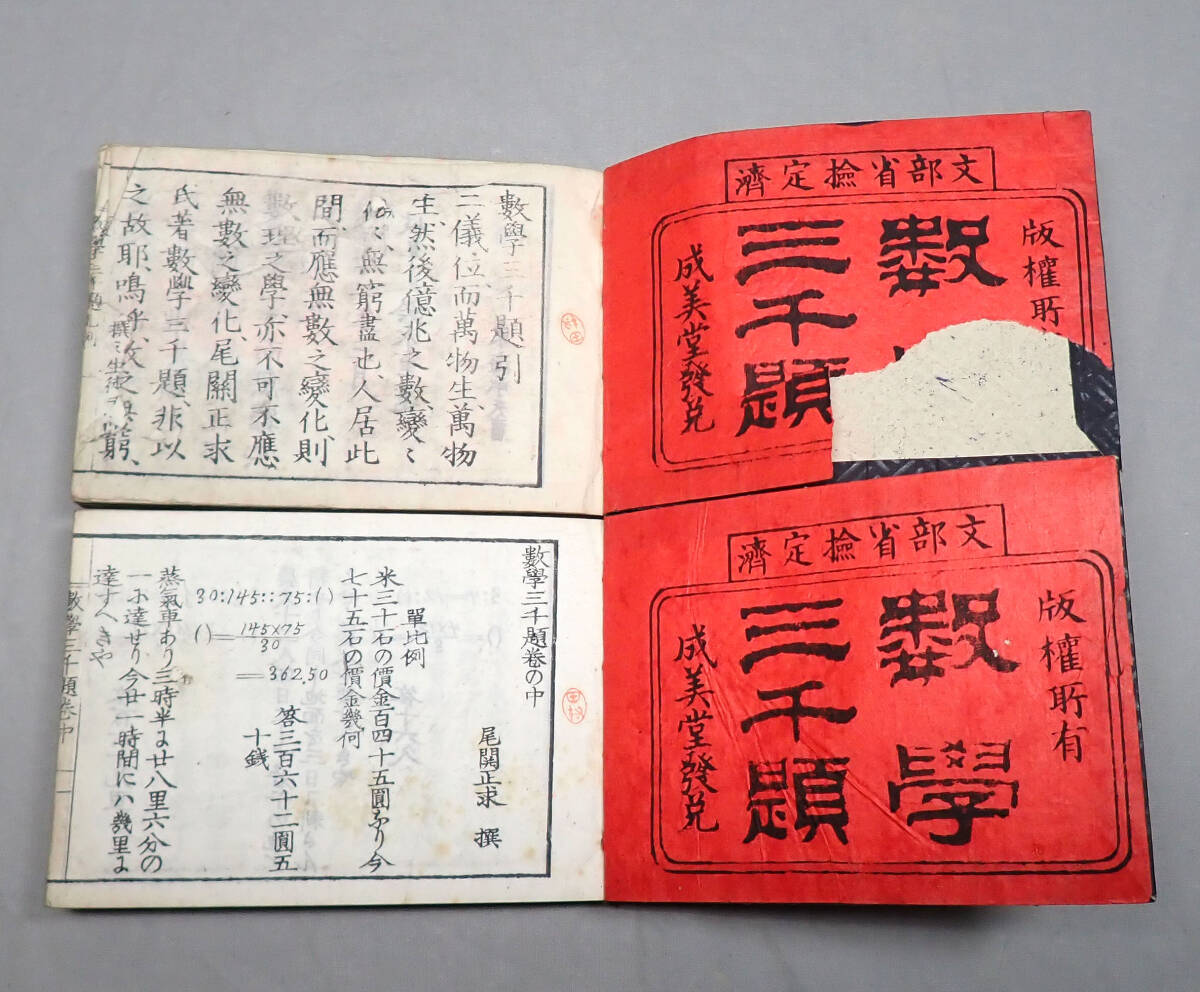 文部省撿定濟
版權所
數
三千題
成美堂發兌
數學三千題引
二儀位而萬物生、萬物
生、然後億兆之數、變々
化々、無窮盡也、人居此
間、而應無數之變化、則
數理之學、亦不可不應
無數之變化、尾關正求
氏著數學三千題、非以
之故耶、嗚乎、
文部省撿定濟
版權所有
數學
三千題
成美堂發兌
數學三千題卷の中
尾関正求 撰
單比例
米三十石の價金百四十五圓なり今
七十五石の價金幾何
30:145::75:()
()=145×75/30
=362.50
答三百六十二圓五
十銭
蒸氣車あり三時半に廿八里六分の
一に達せり今廿一時間にハ幾里に
達すへきや
數學三千題卷中